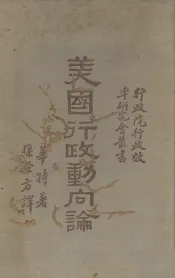 行政院行政效
率研究會叢書
美國行政動向論
華特著
孫澄方譯